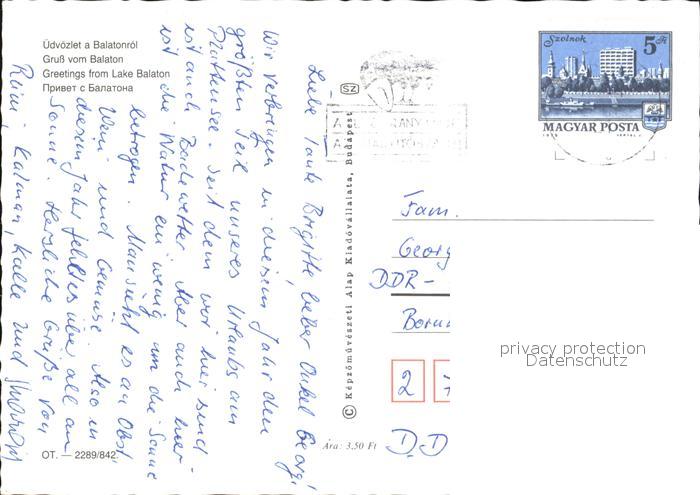 Üdvözlet a Balatonról
Gruß vom Balaton
Greetings from Lake Balaton
Привет с Балатона
Liebe Tante Brigitte, lieber Onkel Georg!
Wir verbringen in diesem Jahr den
größten Teil unseres Urlaubs am
Plattensee. Seit dem wir hier sind
ist auch Badewetter. Aber auch hier
ist die Natur ein wenig um die Sonne
betrogen. Man sieht es an Obst
Wein und Gemüse. Also in
diesem Jahr fehlt es über all an
Sonne. Herzliche Grüße von
Reini, Kalman, Kalle und
OT. — 2289/842.
SZ
© Képzőművészeti Alap Kiadóvállalata, Budapest
Ára: 3,50 Ft
Szolnok
5 Ft
MAGYAR POSTA
Fam.
Georg
DDR -
2
D.-D
privacy protection
Datenschutz